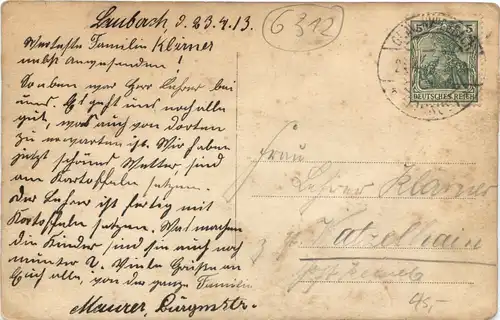 Laubach d. 23.4.13.
6312
Werteste Familie Klärner
nebst Anwesenden!
Soeben war Herr Lehrer bei
uns. Es geht uns noch alle
gut, was auch von dorten
zu erwarten ist. Wir haben
jetzt schönes Wetter sind
am Kartoffeln setzen.
Der Lehrer ist fertig mit
Kartoffeln setzen. Was machen
die Kinder sind sie auch noch
munter? Viele Grüße an
Euch alle, von der ganzen Familie
Maurer,
5
DEUTSCHES REICH
Frau
Lehrer Klärner
Katzelhain
45,-